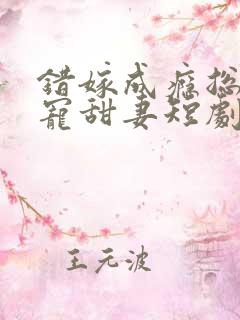 錯嫁成癮总
寵甜妻短劇
王元波